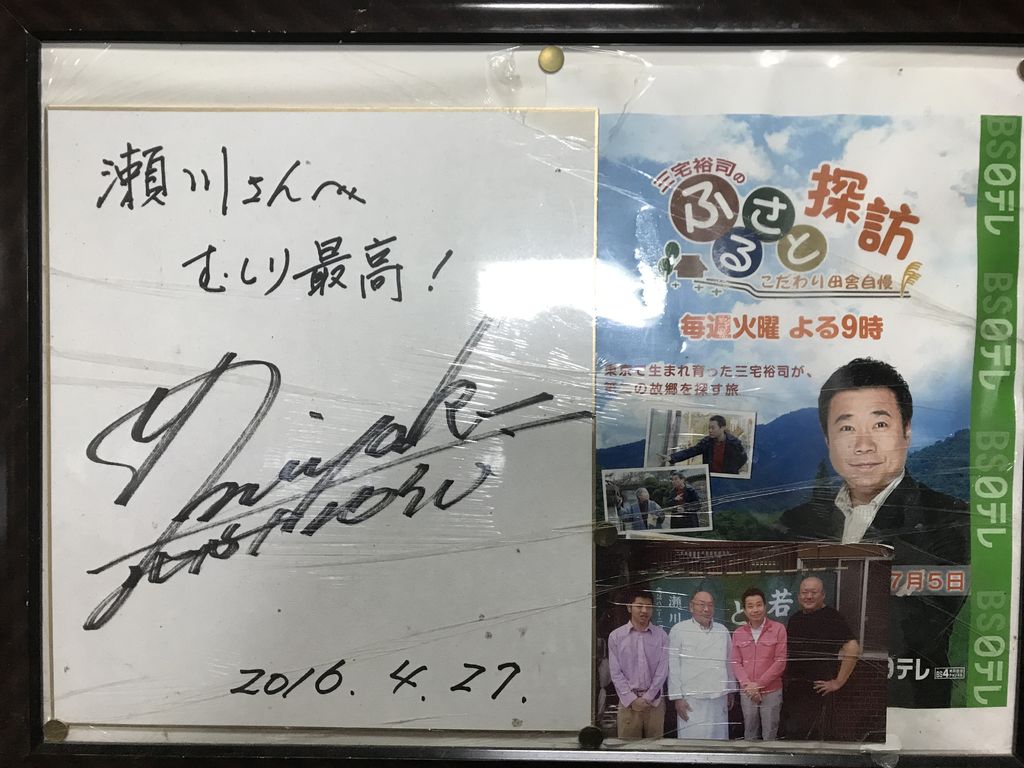 瀬川さんへ
むしり最高!
Miyake
2016. 4. 27.
三宅裕司の
ふるさと
探訪
こだわり田舎自慢
毎週火曜 よる9時
東京で生まれ育った三宅裕司が、
第二の故郷を探す旅
7月5日
BS日テレ
BS日テレ
BS日テレ
BS日テレ
日テレ
BS4
瀬川
若
と